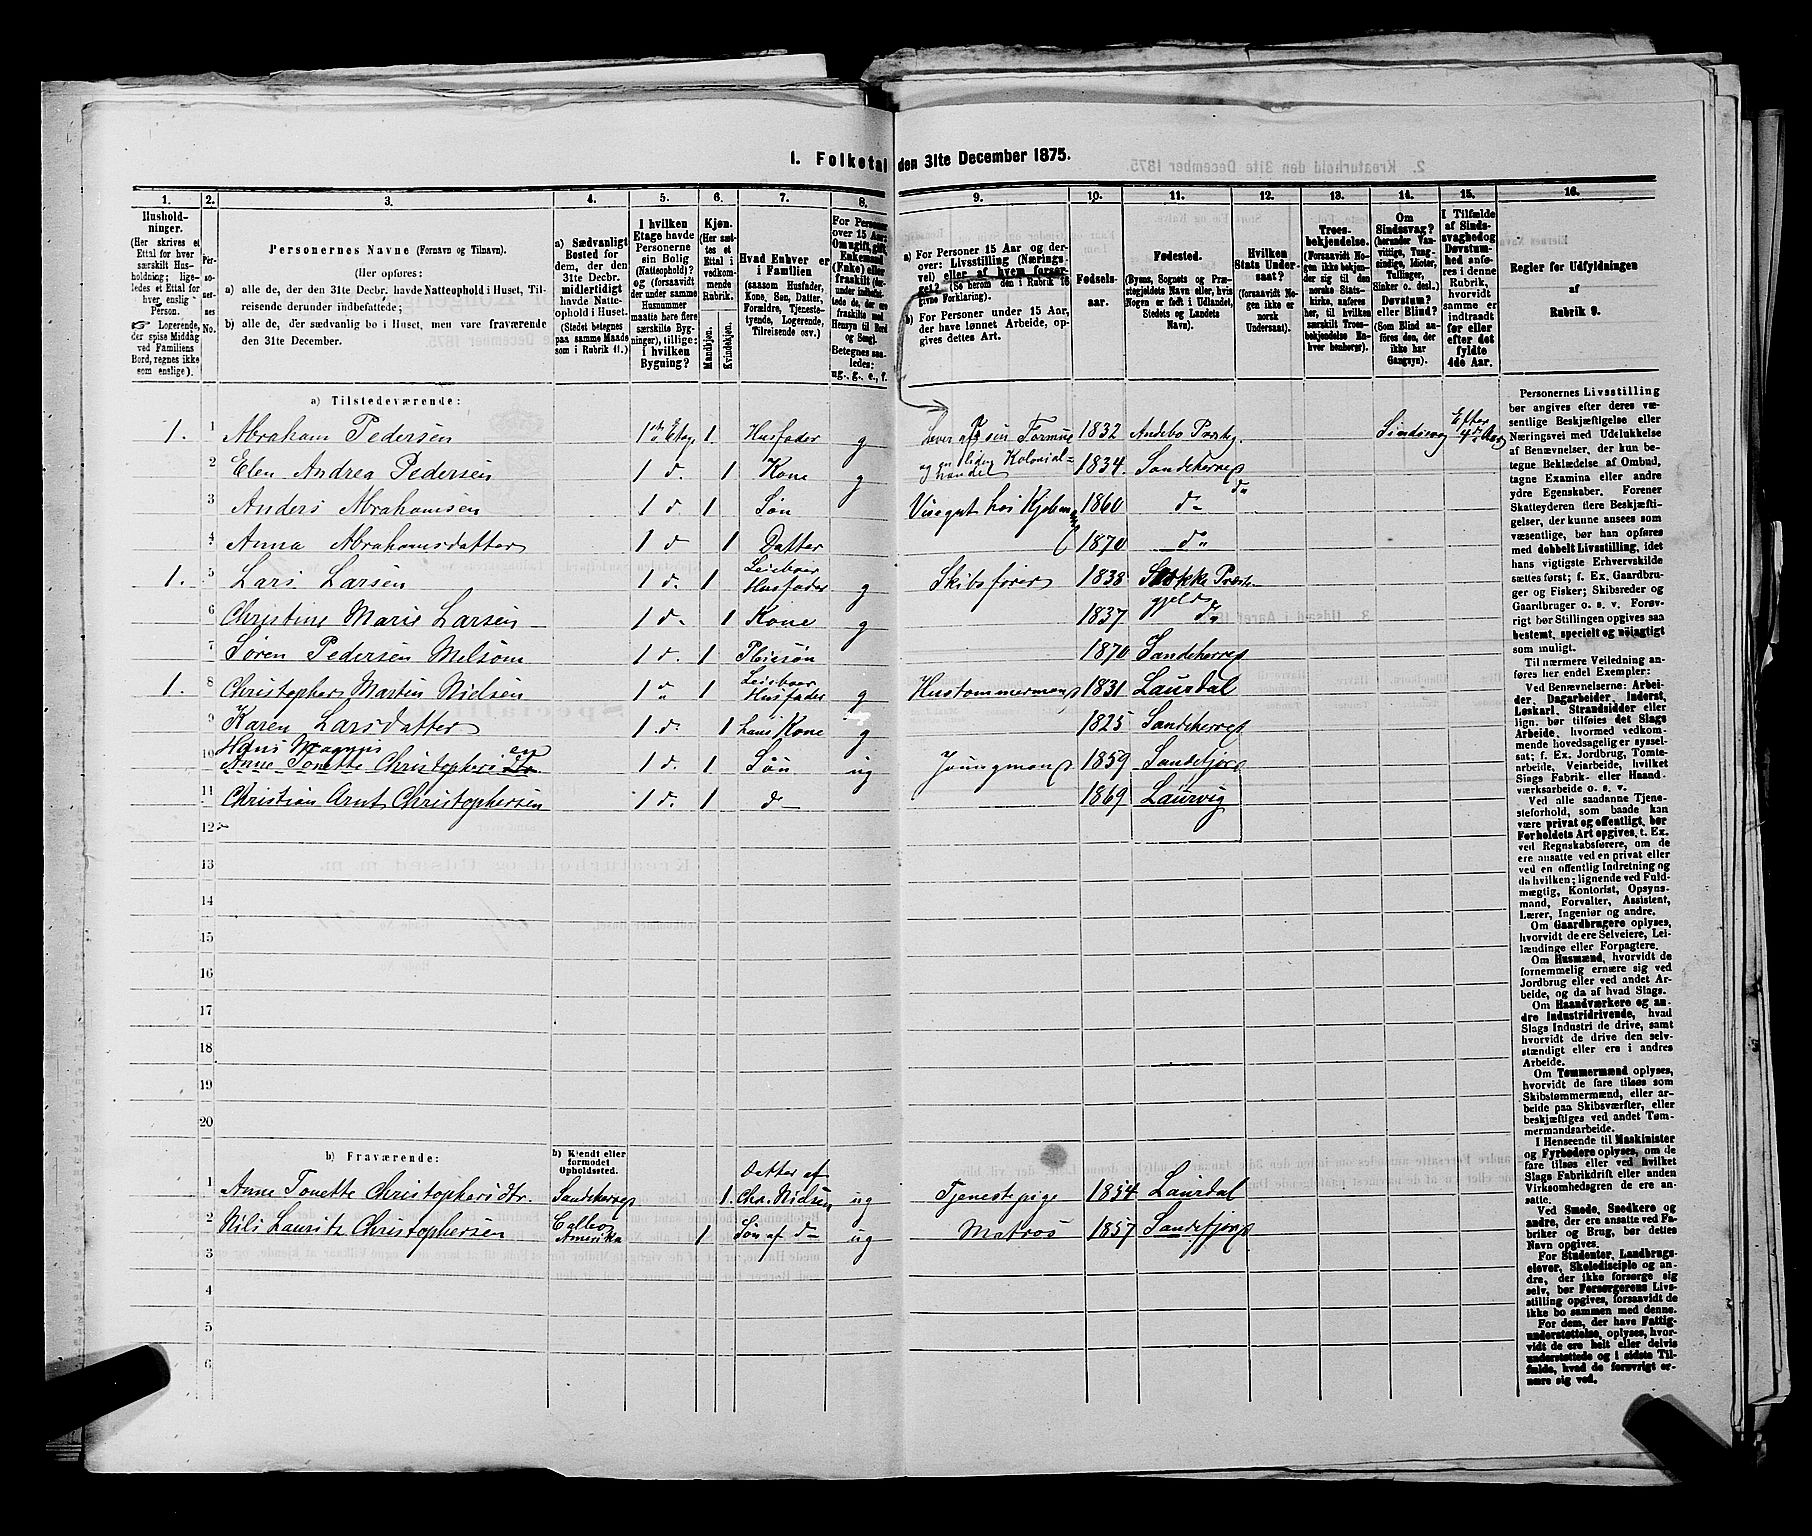 1. Folketal den 31te December 1875.
1. 2. 3. 4. 5. 6. 7. 8. 9. 10. 11. 12. 13. 14. 15. 16.
Hushold-
ninger.
(Her skrives et
Ettal for hver
særskilt Hus-
holdning; lige-
ledes et Ettal for
hver enslig
Person.
☞ Logerende,
der spise Middag
ved Familiens
Bord, regnes ikke
som enslige).
Per-
so-
ner-
nes
No.
Personernes Navne (Fornavn og Tilnavn).
(Her opføres:
a) alle de, der den 31te Decbr. havde Natteophold i Huset, Til-
reisende derunder indbefattede;
b) alle de, der sædvanlig bo i Huset, men vare fraværende
den 31te December.
a) Sædvanligt
Bosted for
dem, der den
31te Decbr.
midlertidigt
havde Natte-
ophold i Huset.
(Stedet betegnes
paa samme Maade
som i Rubrik 11.)
I hvilken
Etage havde
Personerne
sin Bolig
(Natteophold)?
og (forsaavidt
der under samme
Husnummer
maatte høre flere
særskilte Byg-
ninger), tillige:
i hvilken
Bygning?
Kjøn.
(Her sæt-
tes et
Ettal i
vedkom-
mende
Rubrik.
Mandkjøn.
Kvindekjøn.
Hvad Enhver er
i Familien
(saasom Husfader,
Kone, Søn, Datter,
Forældre, Tjeneste-
tyende, Logerende,
Tilreisende osv.)
For Personer
over 15 Aar:
Om ugift, gift,
Enkemand
(Enke) eller
fraskilt
Betegnes saa-
ledes:
ug., g., e., f.
a) For Personer 15 Aar og der-
over: Livsstilling (Nærings-
vei) eller af hvem forsør-
get? (Se herom den i Rubrik 16
givne Forklaring).
b) For Personer under 15 Aar,
der have lønnet Arbeide, op-
gives dettes Art.
Fødsels-
aar.
Fødested.
(Byens, Sognets og Præ-
stegjeldets Navn eller, hvis
Nogen er født i Udlandet,
Stedets og Landets
Navn).
Hvilken
Stats Under-
saat?
(forsaavidt No-
gen ikke er
norsk
Undersaat).
Troes-
bekjendelse.
(Forsaavidt No-
gen ikke bekjen-
der sig til den
norske Stats-
kirke, anføres
her, til hvilken
særskilt Troes-
bekjendelse En-
hver henhører).
Om
Sindssvag?
(herunder Van-
vittige, Tung-
sindige, Idioter,
Tullinger,
Sinker o. desl.)
Døvstum?
eller Blind?
(Som Blind an-
føres den, der
ikke har
Gangsyn).
I Tilfælde
af Sinds-
svaghed og
Døvstum-
hed anfø-
res i denne
Rubrik,
hvorvidt
samme er
indtraadt
før eller
efter det
fyldte
4de Aar.
Regler for Udfyldningen
af
Rubrik 9.
a) Tilstedeværende:
1. 1 Abraham Pedersen 1ste Etag 1 Husfader g Lever af sin Formue 1832 Andebo Præstg. Sindsvag Efter 4de Aar
2 Elen Andrea Pedersen 1 d. 1 Kone g og en liden Kolonial= handel 1834. Sandeherred
3 Anders Abrahamsen 1 d 1 Søn Visegut hos Kjøbm 1860 do do
4 Anna Abrahamsdatter 1 d 1 Datter 1870 do
1. 5 Lars Larsen 1 d. 1 Leieboer Husfader g Skibsfører 1838 Stokke Præste gjeld
6 Christine Marie Larsen 1 d. 1 Kone g 1837 do
7 Søren Pedersen Melsom 1 d. 1 Pleiesøn 1870 Sandeherred
1. 8 Christopher Martin Nielsen 1 d 1 Leieboer Husfader g Hustømmermand 1831 Laurdal
9 Karen Larsdatter 1 d. 1 hans Kone g 1825 Sandeherred
Hans Magnus en
10 Anne Tonette Christophersdtr 1 d. 1 Søn ug Joungmand 1859 Sandefjord
11 Christian Arnt Christophersen 1 d. 1 d 1869 Laurvig
12
13
14
15
16
17
18
19
20
b) Fraværende: b) Kjendt eller formodet Opholdssted.
1 Anne Tonette Christophersdtr. Sandeherred 1. Datter af Chr. Nielsen ug Tjenestepige 1854 Laurdal
2 Nils Lauritz Christophersen Calleo Amerika 1 Søn af do ug Matros 1857 Sandefjord
3
4
5
6
Personernes Livsstilling
bør angives efter deres væ-
sentlige Beskjæftigelse eller
Næringsvei med Udelukkelse
af Benævnelser, der kun be-
tegne Beklædelse af Ombud,
tagne Examina eller andre
ydre Egenskaber. Forener
Skatteyderen flere Beskjæfti-
gelser, der kunne ansees som
væsentlige, bør han opføres
med dobbelt Livsstilling, idet
hans vigtigste Erhvervskilde
sættes først; f. Ex. Gaardbru-
ger og Fisker; Skibsreder og
Gaardbruger o. s. v. Forøv-
rigt bør Stillingen opgives saa
bestemt, specielt og nøiagtigt
som muligt.
Til nærmere Veiledning an-
føres her endel Exempler:
Ved Benævnelserne: Arbei-
der, Dagarbeider, Inderst,
Løskarl, Strandsidder eller
lign. bør tilføies det Slags
Arbeide, hvormed vedkom-
mende hovedsagelig er syssel-
sat; f. Ex. Jordbrug, Tomte-
arbeide, Veiarbeide, hvilket
Slags Fabrik- eller Haand-
værksarbeide o. s. v.
Ved alle saadanne Tjene-
steforhold, som baade kan
være privat og offentligt, bør
Forholdets Art opgives, t. Ex.
ved Regnskabsførere, om de
ere ansatte ved en privat eller
ved en offentlig Indretning og
da hvilken; lignende ved Fuld-
mægtig, Kontorist, Opsyns-
mand, Forvalter, Assistent,
Lærer, Ingeniør og andre.
Om Gaardbrugere oplyses,
hvorvidt de ere Selveiere, Lei-
lændinge eller Forpagtere.
Om Husmænd, hvorvidt de
fornemmelig ernære sig ved
Jordbrug eller ved andet Ar-
beide, og da af hvad Slags.
Om Haandværkere og an-
dre Industridrivende, hvad
Slags Industri de drive, samt
hvorvidt de drive den selv-
stændigt eller ere i andres
Arbeide.
Om Tømmermænd oplyses,
hvorvidt de fare tilsøs som
Skibstømmermænd, eller ar-
beide paa Skibsværfter, eller
beskjæftiges ved andet Tøm-
mermandsarbeide.
I Henseende til Maskinister
og Fyrbødere oplyses, om de
fare tilsøs eller ved hvilket
Slags Fabrikdrift eller anden
Virksomhed de ere ansatte.
Ved Smede, Snedkere og
andre, der ere ansatte ved Fa-
briker og Brug, bør dettes
Navn opgives.
For Studenter, Landbrugs-
elever, Skoledisciple og an-
dre, der ikke forsørge sig
selv, bør Forsørgerens Livs-
stilling opgives, forsaavidt de
ikke bo sammen med denne.
For dem, der have Fattig-
understøttelse, oplyses, hvor-
vidt de ere helt eller delvis
understøttede og i sidste Til-
fælde, hvad de forøvrigt er-
nære sig ved.